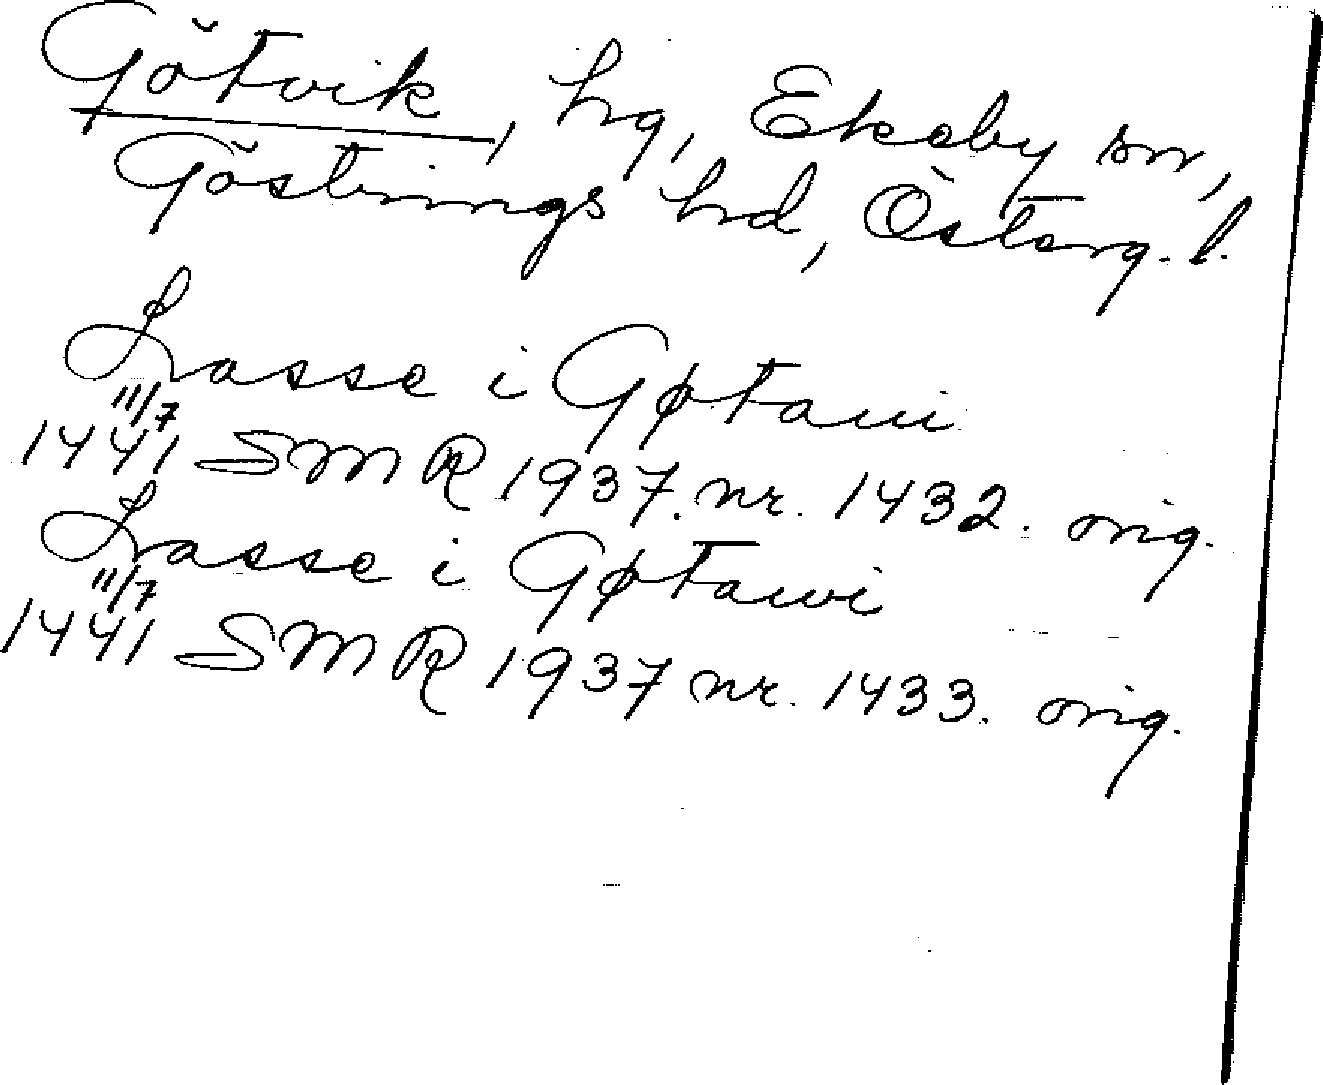 Götvik, hg, Ekeby sn,
Göstrings hd, Österg. l.
Lasse i Gøtaui
11/7
1441 SMR 1937. nr. 1432. orig.
Lasse i Gøtawi
11/7
1441 SMR 1937 nr. 1433. orig.